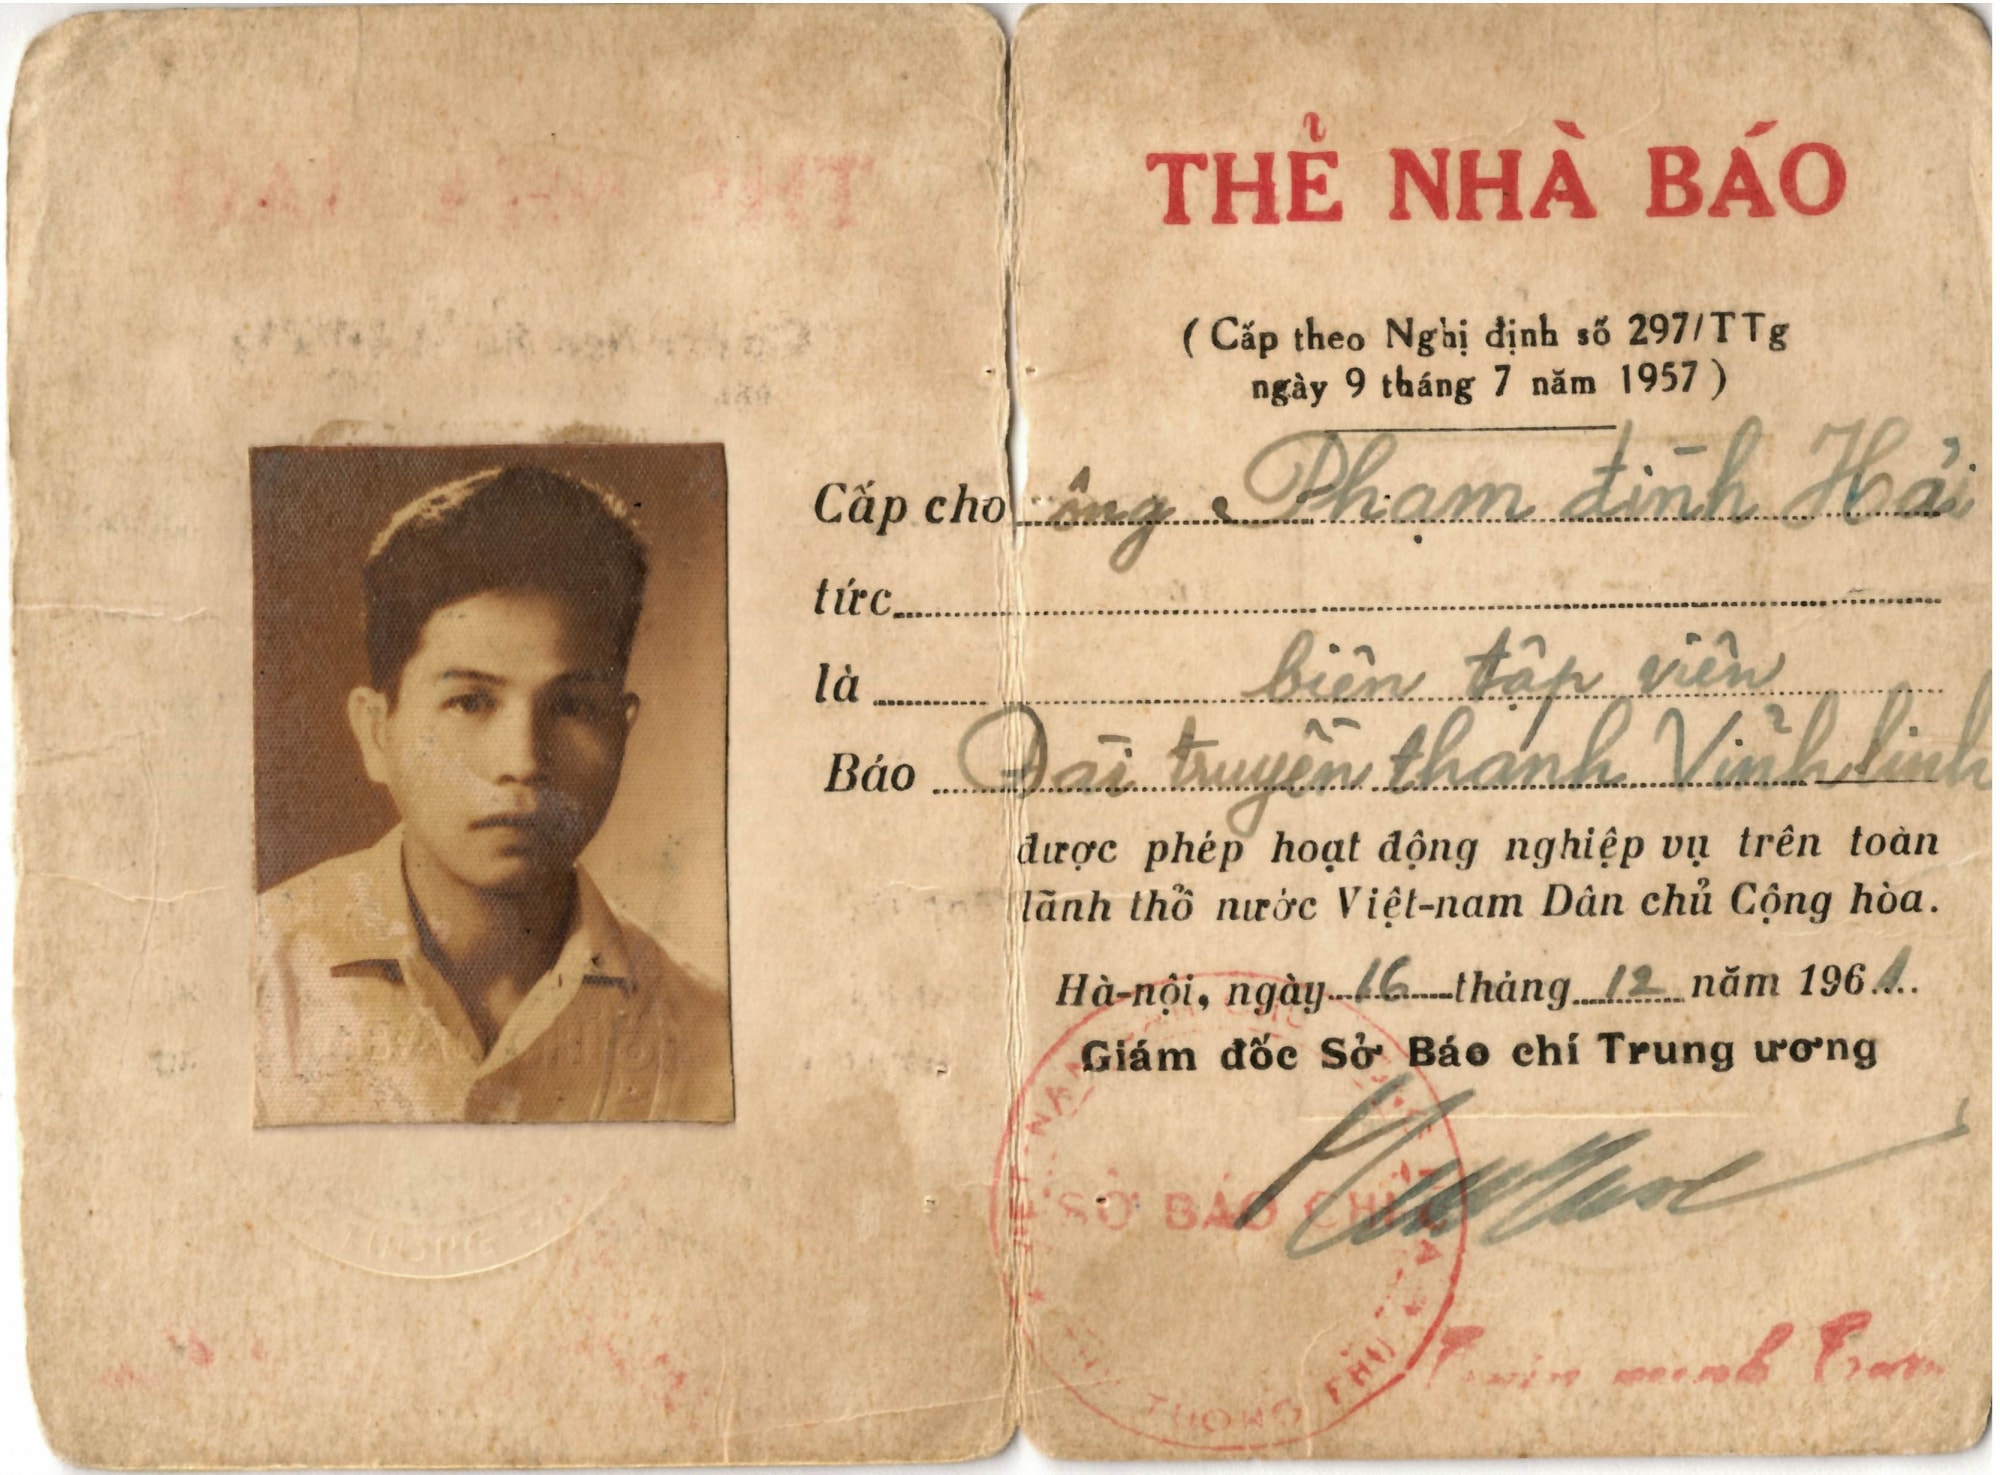 THẺ NHÀ BÁO
( Cấp theo Nghị định số 297/TTg
ngày 9 tháng 7 năm 1957 )
Cấp cho ông Phạm đình Hải
tức
là biên tập viên
Báo Đài truyền thanh Vĩnh linh
được phép hoạt động nghiệp vụ trên toàn
lãnh thổ nước Việt-nam Dân chủ Cộng hòa.
Hà-nội, ngày 16 tháng 12 năm 1961
Giám đốc Sở Báo chí Trung ương
SỞ BÁO CHÍ